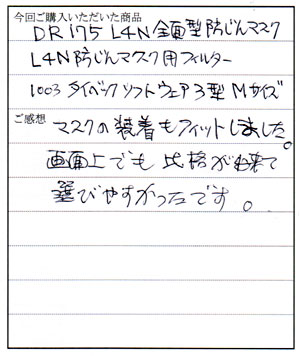 今回ご購入いただいた商品
DR175 L4N 全面型防じんマスク
L4N防じんマスク用フィルター
1003 タイベックソフトウェア3型 Mサイズ
ご感想
マスクの装着もフィットしました。
画面上でも比格が出来て
選びやすかったです。